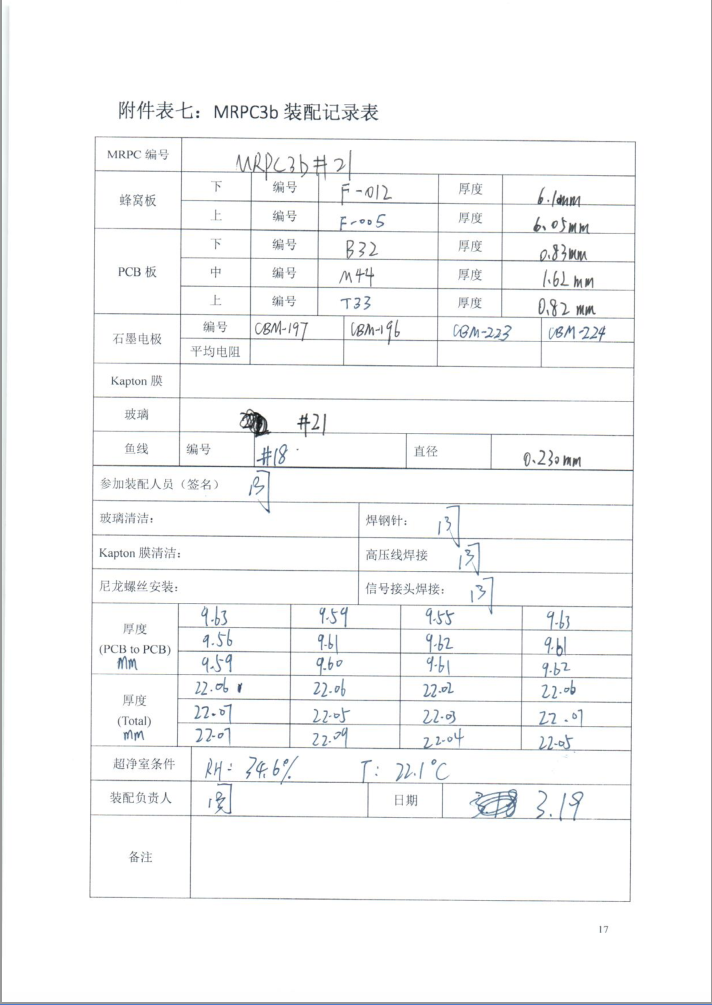 附件表七：MRPC3b 装配记录表
MRPC 编号 MRPC3b#21
蜂窝板 下 编号 F-012 厚度 6.10mm
上 编号 F-005 厚度 6.05mm
PCB 板 下 编号 B32 厚度 0.83mm
中 编号 M44 厚度 1.62mm
上 编号 T33 厚度 0.82mm
石墨电极 编号 CBM-197 CBM-196 CBM-223 CBM-224
平均电阻
Kapton 膜
玻璃 #21
鱼线 编号 #18 直径 0.230mm
参加装配人员（签名）
玻璃清洁： 焊钢针：
Kapton 膜清洁： 高压线焊接
尼龙螺丝安装： 信号接头焊接：
厚度 (PCB to PCB) mm
9.63 9.59 9.55 9.63
9.56 9.61 9.62 9.61
9.59 9.60 9.61 9.62
厚度 (Total) mm
22.06 22.06 22.02 22.06
22.07 22.05 22.03 22.07
22.07 22.09 22.04 22.05
超净室条件 RH: 34.6% T: 22.1°C
装配负责人 日期 3.19
备注
17